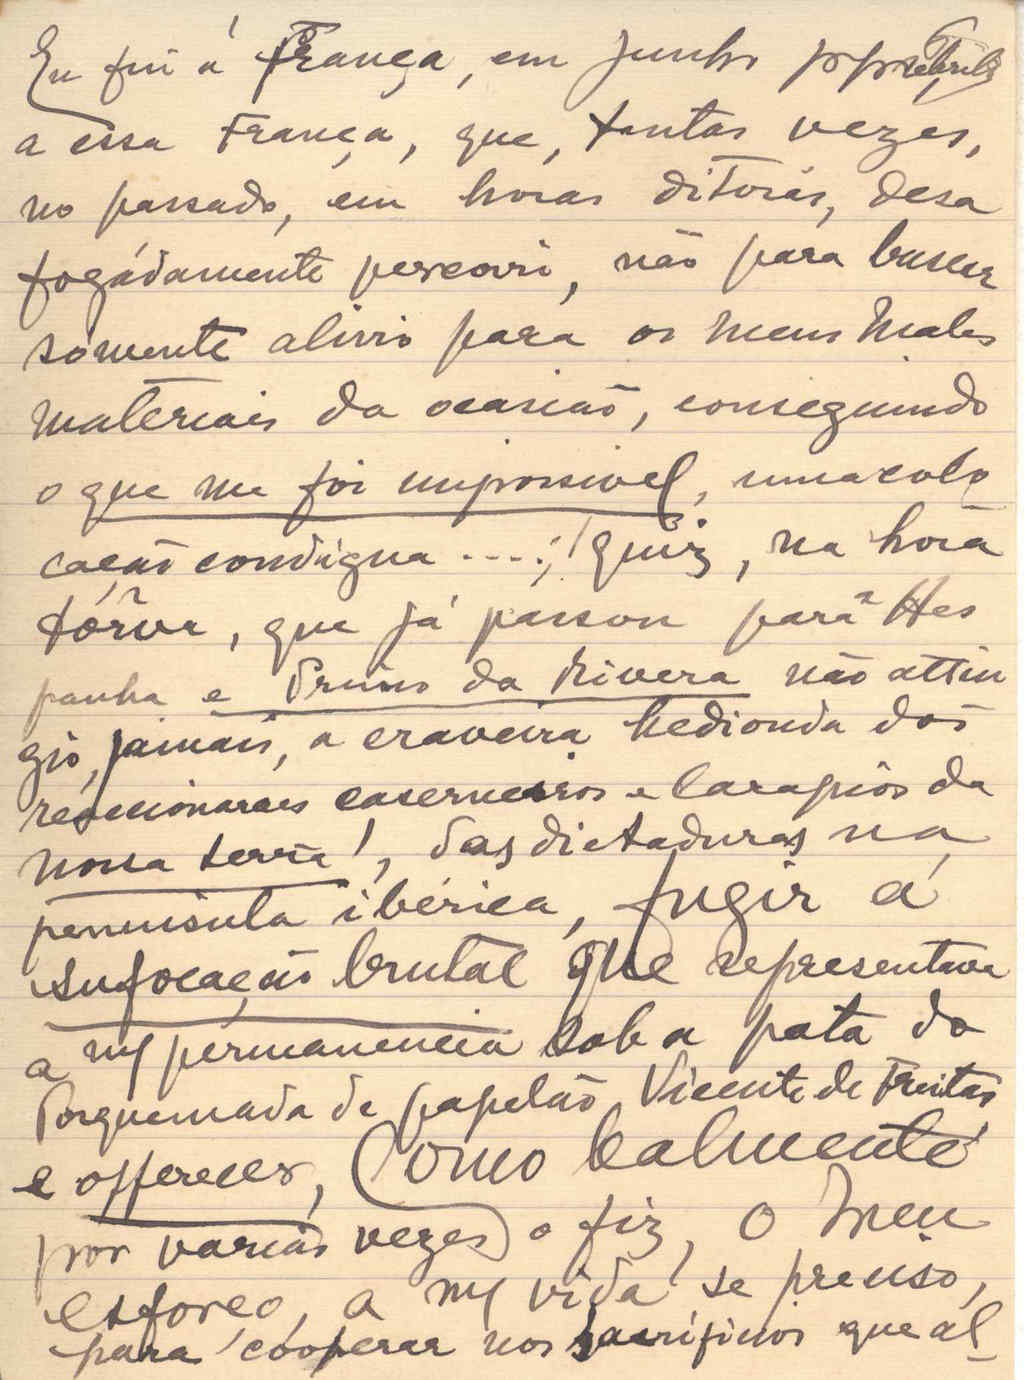 Eu fui á França, em Junho
a essa França, que, tantas vezes,
no passado, em horas ditosas, desa
fogádamente percorri, não para buscar
sómente alivio para os meus males
materiais da ocasião, conseguindo
o que me foi impossivel, uma colo
cação condigna ....; quiz, na hora
tórva, que já passou para Hes
panha e Primo da Rivera não attin
gio, jamais, a craveira hedionda dos
reaccionarios caserneiros e larapios da
nossa terra!, das dictaduras na
peninsula ibérica, fugir á
sufocação brutal que representava
a mª permanencia sob a pata do
Torquemada de papelão, Vicente de Freitas,
e offerecer, (como lealmente
por varias vezes) o fiz, o meu
esforço, a mª vida, se preciso,
para coóperar nos sacrificios que al_